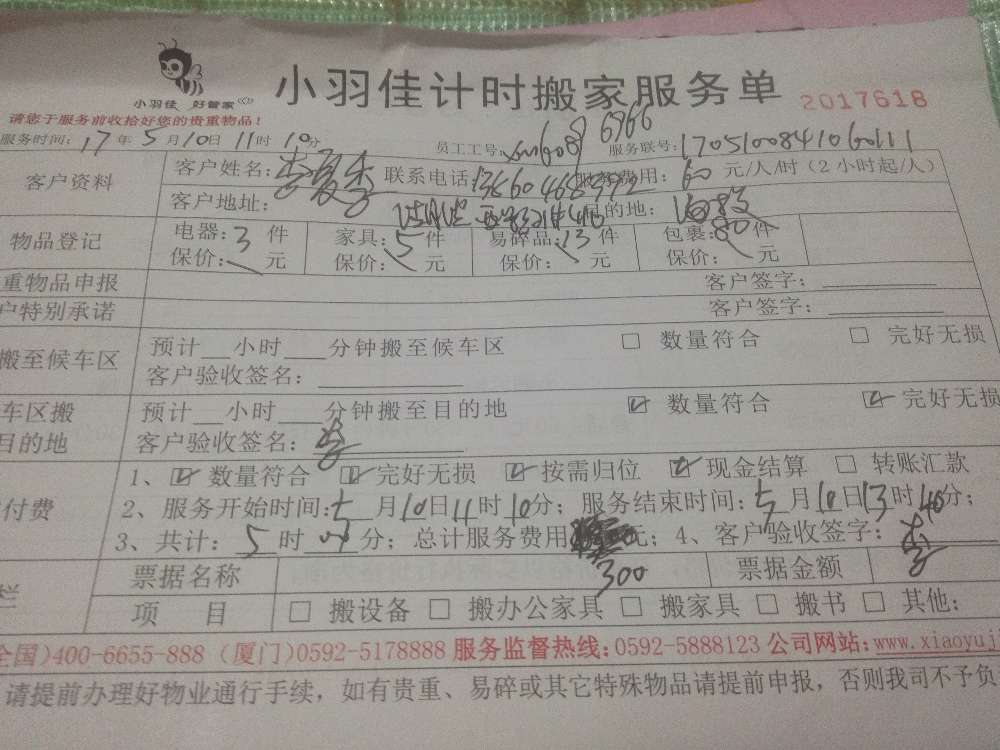 小羽佳 好管家
小羽佳计时搬家服务单 2017618
请您于服务前收拾好您的贵重物品!
服务时间: 17年5月10日11时10分 员工工号: 服务联号: 1705100841060111
客户资料 客户姓名: 联系电话: 服务费用: 60 元/人/时(2小时起/人)
客户地址: 目的地:
物品登记 电器: 3 件 家具: 5 件 易碎品: 13 件 包裹: 80 件
保价: 元 保价: 元 保价: 元 保价: 元
重物品申报 客户签字:
户特别承诺 客户签字:
搬至候车区 预计__小时___分钟搬至候车区 数量符合 完好无损
客户验收签名:
车区搬 预计__小时___分钟搬至目的地 数量符合 完好无损
目的地 客户验收签名: 李
付费 1、数量符合 完好无损 按需归位 现金结算 转账汇款
2、服务开始时间: 5月10日11时10分; 服务结束时间: 5月10日13时40分;
3、共计: 5时 分; 总计服务费用 元; 4、客户验收签字: 李
300
栏 票据名称 票据金额
项 目 搬设备 搬办公家具 搬家具 搬书 其他:
全国)400-6655-888 (厦门)0592-5178888 服务监督热线:0592-5888123 公司网站:www.xiaoyuj
请提前办理好物业通行手续,如有贵重、易碎或其它特殊物品请提前申报,否则我司不予负